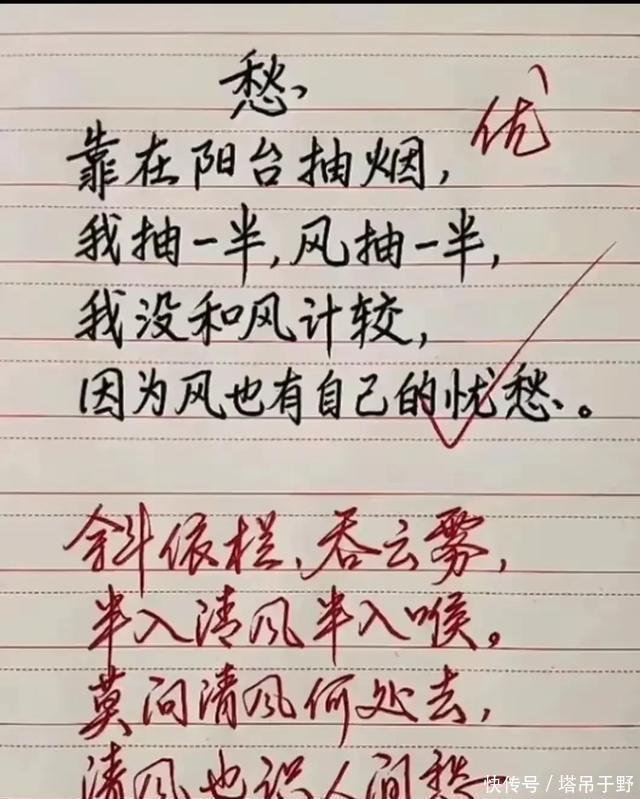 愁
优
靠在阳台抽烟，
我抽一半，风抽一半，
我没和风计较，
因为风也有自己的忧愁。
斜依栏，吞云雾，
半入清风半入喉。
莫问清风何处去，
清风也识人间愁
快传号／塔吊于野